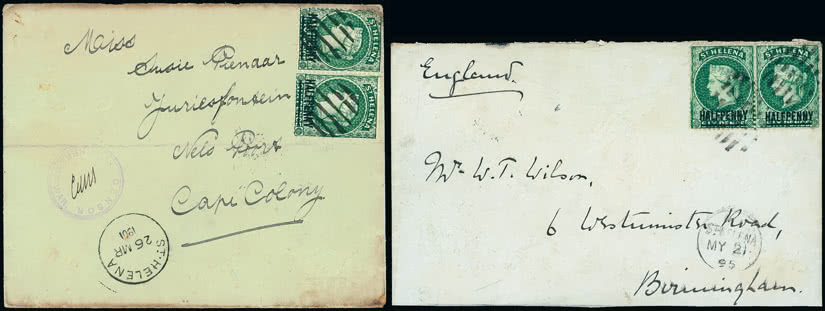 Miss
Susie Pienaar
Nels Port
Cape Colony
CENSOR
ST. HELENA
26 MR
1901
ST HELENA
HALFPENNY
ST HELENA
HALFPENNY
England.
Mr. W. T. Wilson,
6 Westminster Road,
Birmingham.
ST HELENA
HALFPENNY
ST HELENA
HALFPENNY
ST. HELENA
MY 21
95